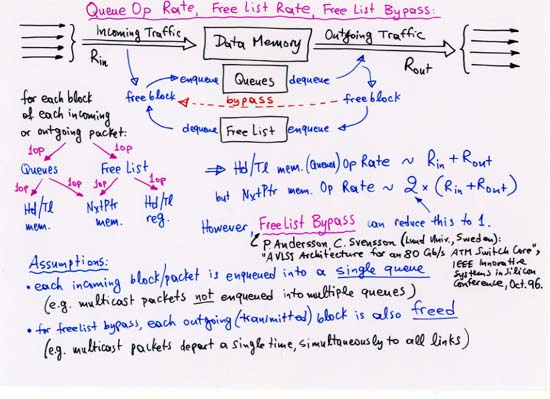 Queue Op Rate, Free List Rate, Free List Bypass:
Incoming Traffic
Rin
Data Memory
Outgoing Traffic
Rout
enqueue
Queues
dequeue
free block
bypass
free block
dequeue
Free List
enqueue
for each block
of each incoming
or outgoing packet:
1op
1op
Queues
Free List
1op
1op
1op
1op
Hd/Tl
mem.
NxtPtr
mem.
Hd/Tl
reg.
⇒ Hd/Tl mem. (Queues) Op Rate ~ Rin + Rout
but NxtPtr mem. Op Rate ~ 2 × (Rin + Rout)
However, Free List Bypass can reduce this to 1.
P. Andersson, C. Svensson (Lund Univ., Sweden):
"A VLSI Architecture for an 80 Gb/s ATM Switch Core",
IEEE Innovative
Systems in Silicon
Conference, Oct. 96.
Assumptions:
• each incoming block/packet is enqueued into a single queue
(e.g. multicast packets not enqueued into multiple queues)
• for free list bypass, each outgoing (transmitted) block is also freed
(e.g. multicast packets depart a single time, simultaneously to all links)